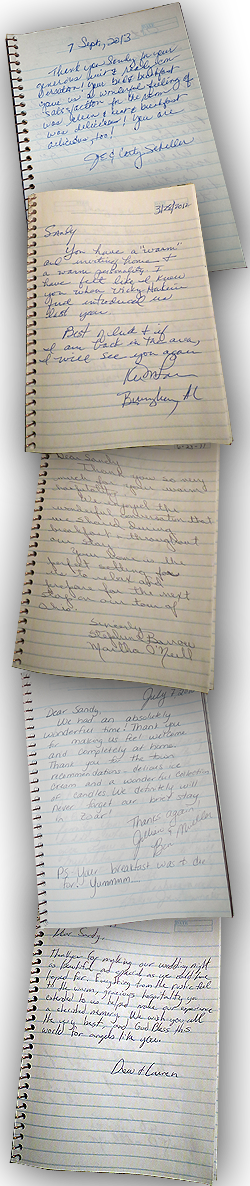 7 Sept, 2013
Thank you Sandy for your
generous spirit & really
location! Your bed & breakfast
gave us a wonderful feeling of
satisfaction for the room
was clean & neat & breakfast
was delicious! You are
delicious, too!
Joe & Cody
3/28/2012
Sandy
You have a "warm"
and inviting home &
a warm personality. I
have felt like I knew
you when Vicky
first introduced us
last year.
Best of luck & if
I am back in the area,
I will see you again
Birmingham, AL
Dear Sandy,
Thank you so very
much for your warm
hospitality.
We enjoyed the
wonderful conversation that
we shared during
breakfast & throughout
our stay.
Your home is the
perfect setting for
us to relax and
prepare for the next
stop on our tour of
Ohio.
Sincerely
Stephen Barrow
Martha O'Neill
July 7
Dear Sandy,
We had an absolutely
wonderful time! Thank you
for making us feel welcome
and completely at home.
Thank you for the town
recommendations - delicious ice
cream and a wonderful collection
of candles. We definitely will
never forget our brief stay
in Zoar!
Thanks again!
Ben
PS. Your breakfast was to die
for! Yummmm...
Dear Sandy,
Thank you for making our wedding night
as beautiful and special as we could have
hoped for. Everything from the
to the warm, gracious hospitality you
extended to us helped make our experience
a cherished memory. We wish you all
the very best, and God Bless this
world for angels like you.
Dew & Lauren